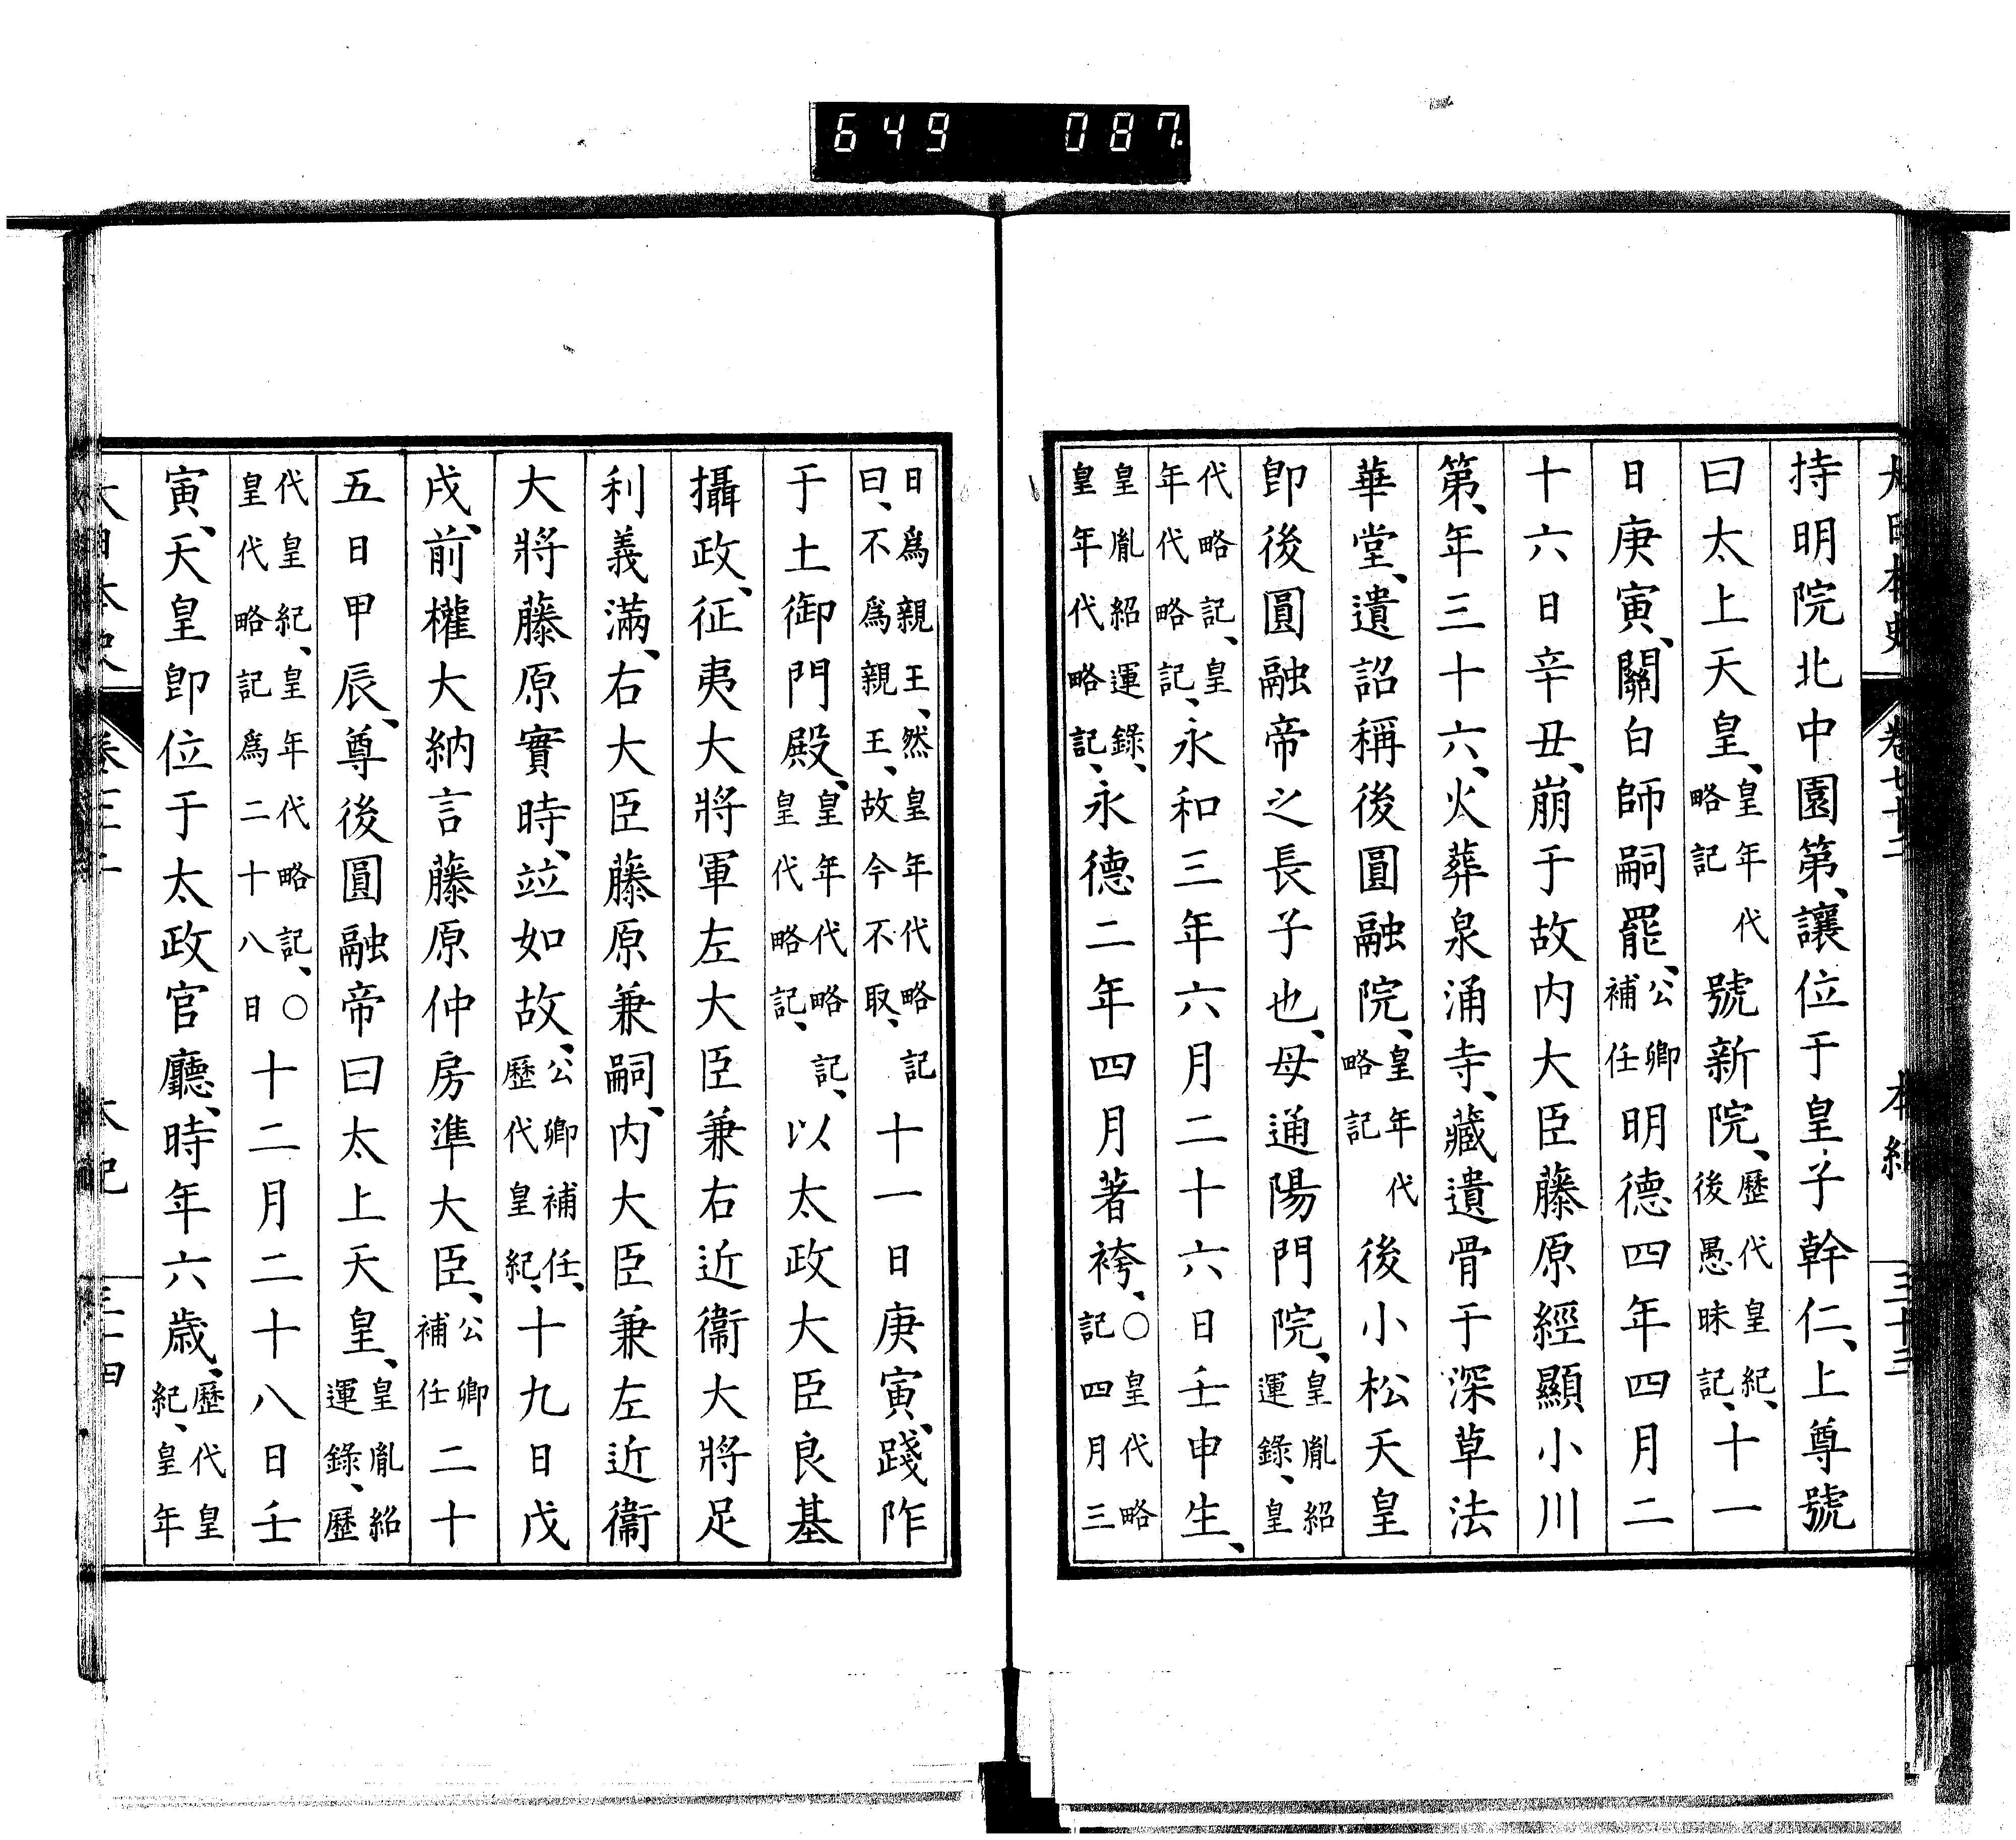 649 087
大日本史 卷七十二 本紀 三十三
持明院北中園第、讓位于皇子幹仁、上尊號
曰太上天皇、皇年代略記號新院、歷代皇紀、後愚昧記、十一
日庚寅、關白師嗣罷、公卿補任明德四年四月二
十六日辛丑、崩于故内大臣藤原經顯小川
第、年三十六、火葬泉涌寺、藏遺骨于深草法
華堂、遺詔稱後圓融院、皇年代略記後小松天皇
卽後圓融帝之長子也、母通陽門院、皇胤紹運錄、皇
年代略記、代略記、皇永和三年六月二十六日壬申生、
皇胤紹運錄、皇年代略記、永德二年四月著袴、○皇代略記四月三
日爲親王、然皇年代略記曰、不爲親王、故今不取、十一日庚寅、踐阼
于土御門殿、皇年代略記、皇代略記、以太政大臣良基
攝政、征夷大將軍左大臣兼右近衞大將足
利義滿、右大臣藤原兼嗣、内大臣兼左近衞
大將藤原實時、竝如故、公卿補任、歷代皇紀、十九日戊
戌、前權大納言藤原仲房準大臣、公卿補任二十
五日甲辰、尊後圓融帝曰太上天皇、皇胤紹運錄、歷
代皇紀、皇年代略記、○皇代略記爲二十八日十二月二十八日壬
寅、天皇卽位于太政官廳、時年六歲、歷代皇紀、皇年